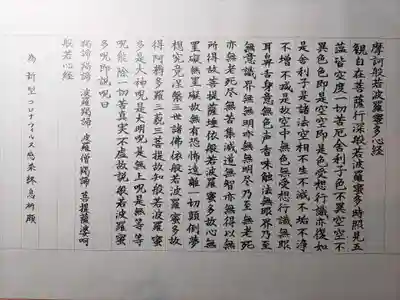 摩訶般若波羅蜜多心経
観自在菩薩行深般若波羅蜜多時照見五
蘊皆空度一切苦厄舎利子色不異空空不
異色色即是空空即是色受想行識亦復如
是舎利子是諸法空相不生不滅不垢不浄
不増不減是故空中無色無受想行識無眼
耳鼻舌身意無色声香味触法無眼界乃至
無意識界無無明亦無無明尽乃至無老死
亦無老死尽無苦集滅道無智亦無得以無
所得故菩提薩埵依般若波羅蜜多故心無
罣礙無罣礙故無有恐怖遠離一切顛倒夢
想究竟涅槃三世諸仏依般若波羅蜜多故
得阿耨多羅三藐三菩提故知般若波羅蜜
多是大神呪是大明呪是無上呪是無等等
呪能除一切苦真実不虚故説般若波羅蜜
多呪即説呪曰
羯諦羯諦 波羅羯諦 波羅僧羯諦 菩提薩婆呵
般若心経
為 新型コロナウィルス感染終息祈願